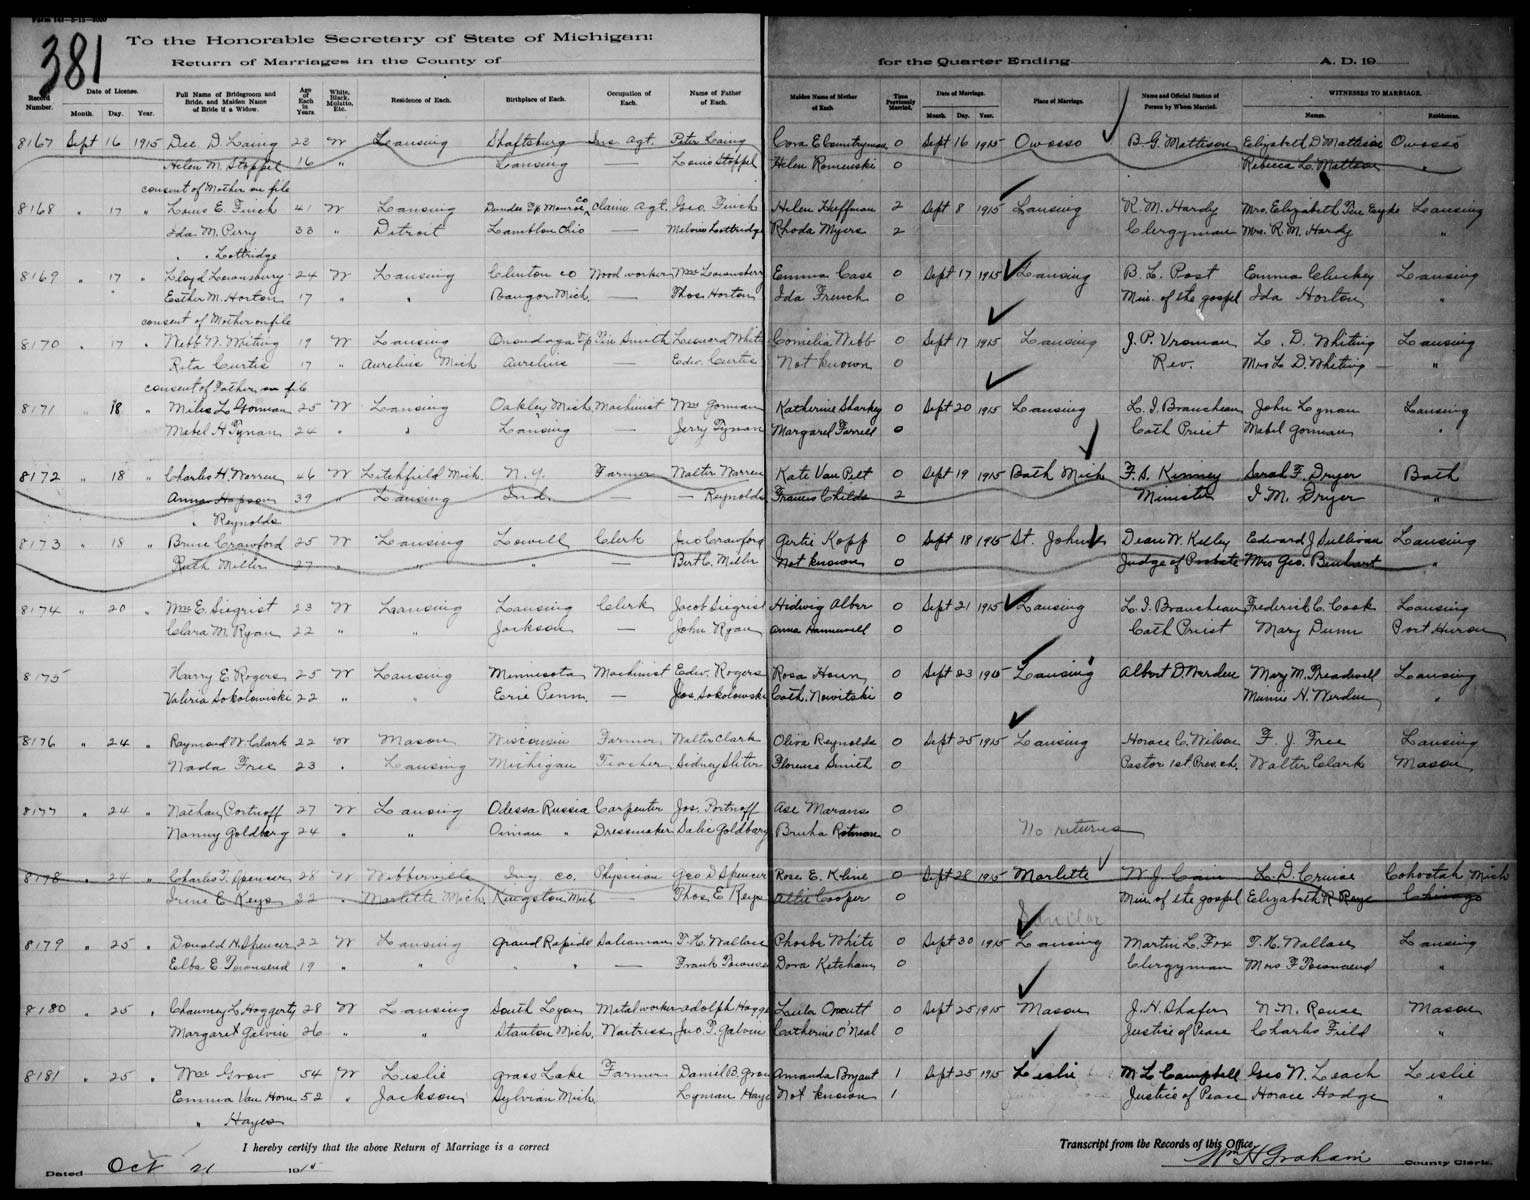 Form 141—5-12—5000
381
To the Honorable Secretary of State of Michigan:
Return of Marriages in the County of
for the Quarter Ending A. D. 19
Record Number. Date of License. Month. Day. Year. Full Name of Bridegroom and Bride, and Maiden Name of Bride if a Widow. Age of Each in Years. White, Black, Mulatto, Etc. Residence of Each. Birthplace of Each. Occupation of Each. Name of Father of Each. Maiden Name of Mother of Each. Time Previously Married. Date of Marriage. Month. Day. Year. Place of Marriage. Name and Official Station of Person by Whom Married. WITNESSES TO MARRIAGE. Names. Residences.
8167 Sept 16 1915 Dee D. Laing 23 W Lansing Shaftsburg Ins Agt. Peter Laing Cora E Countryman 0 Sept 16 1915 Owosso B. G. Mattison Elizabeth D Mattison Owosso
Helen M. Stoppel 16 " Lansing — Louis Stoppel Helen Rominski 0 Rebecca L. Mattison "
consent of Mother on file
8168 " 17 " Louis E. Finch 41 W Lansing Dundee Tp Monroe Co Claim Agt. Geo. Finch Helen Heffman 2 Sept 8 1915 Lansing R. M. Hardy Mrs. Elizabeth Ten Eyke Lansing
Ida M. Perry 33 " Detroit — Rhoda Myers 2 Clergyman Mrs. R. M. Hardy "
" " Lottridge
8169 " 17 " Lloyd Lounsbury 24 W Lansing Clinton Co Wood worker Wm Lounsbery Emma Case 0 Sept 17 1915 Lansing B. L. Post Emma Cluckey Lansing
Esther M. Horton 17 " " Bangor Mich. — Thos Horton Ida French 0 Min. of the gospel Ida Horton "
consent of Mother on file
8170 " 17 " Webb W. Whiting 19 W Lansing Onondaga Tp Tin Smith Leonard White Cornelia Webb 0 Sept 17 1915 Lansing J. P. Vroman L. D. Whiting Lansing
Rita Curtis 17 " Aurelius Mich Aurelius Edw. Curtis Not known 0 Rev. Mrs L. D. Whiting "
consent of Father on file
8171 " 18 " Miles L Gorman 25 W Lansing Oakley Mich. Machinist Wm Gorman Katherine Sharkey 0 Sept 20 1915 Lansing L. I. Brancheau John Lynan Lansing
Mabel H Tynan 24 " " Lansing — Jerry Tynan Margaret Farrell 0 Cath Priest Mabel Gorman "
8172 " 18 " Charles H. Warren 46 W Litchfield Mich. N.Y. Farmer Walter Warren Kate Van Pelt 0 Sept 19 1915 Bath Mich F. S. Kinney Sarah F. Dryer Bath
Anna Hapson 39 " Lansing Ind. — Reynolds Francis Childs 2 Minister I. M. Dryer "
" Reynolds
8173 " 18 " Bruce Crawford 25 W Lansing Lowell Clerk Jno Crawford Gertie Kopp 0 Sept 18 1915 St. Johns Dean W. Kelley Edward J Sullivan Lansing
Ruth Miller 27 " " " — Bert C. Miller Not known 0 Judge of Probate Mrs Geo. "
8174 " 20 " Wm E. Siegrist 23 W Lansing Lansing Clerk Jacob Siegrist Hidwig Alber 0 Sept 21 1915 Lansing L. I. Brancheau Frederick C. Cook Lansing
Clara M. Ryan 22 " " Jackson — John Ryan Anna Hammill 0 Cath Priest Mary Dunn Port Huron
8175 Harry E Rogers 25 W Lansing Minnesota Machinist Edw. Rogers Rosa Houn 0 Sept 23 1915 Lansing Albert D. Werden Mary M. Treadwell Lansing
Valeria Sokolowski 22 " " Erie Penn. — Jos. Sokolowski Cath. Nowitski 0 Minnie H. Werden "
8176 " 24 " Raymond W Clark 22 W Mason Wisconsin Farmer Walter Clark Oliva Reynolds 0 Sept 25 1915 Lansing Horace C. Wilson F. J. Free Lansing
Nada Free 23 " Lansing Michigan Teacher Sidney Sliter Florence Smith 0 Pastor 1st Pres. ch. Walter Clark Mason
8177 " 24 " Nathan Portnoff 27 W Lansing Odessa Russia Carpenter Jos. Portnoff Ase Marans 0
Nanny Goldberg 24 " " Oiman " Dressmaker Salie Goldbarg Bruha Rotman 0 No returns
8178 " 24 " Charles T. Spencer 28 W Webberville Ing. Co. Physician Geo D Spencer Rose E. Kline 0 Sept 28 1915 Marlette W. J. Cain L. D. Cruise Cohoctah Mich
Irene E Keys 22 " Marlette Mich. Kingston Mich — Thos. E Keys Allie Cooper 0 Min. of the gospel Elizabeth R Keys Chicago
Sanilac
8179 " 25 " Donald H. Spencer 22 W Lansing Grand Rapids Salesman T. H. Wallace Phoebe White 0 Sept 30 1915 Lansing Martin L. Fox T. H. Wallace Lansing
Elba E. Townsend 19 " " " " — Frank Townsend Dora Ketcham 0 Clergyman Mrs F Townsend "
8180 " 25 " Chauncy L Hoggerty 28 W Lansing South Lyon Metal worker Adolph Hogge Leila Orcutt 0 Sept 25 1915 Mason J. H. Shafer N. N. Rouse Mason
Margaret Galvin 26 " " Stanton Mich. Waitress Jno. T. Galvin Catherine O'Neal 0 Justice of Peace Charles Field "
8181 " 25 " Wm Grow 54 W Leslie Grass Lake Farmer Daniel B. Grow Amanda Bryant 1 Sept 25 1915 Leslie M. L. Campbell Geo W. Leach Leslie
Emma Van Horn 52 " Jackson Sylvian Mich. Lyman Hayes Not known 1 Justice of Peace Horace Hodge "
" Hayes
I hereby certify that the above Return of Marriage is a correct Transcript from the Records of this Office
Dated Oct 21 1915 Wm H Graham County Clerk.